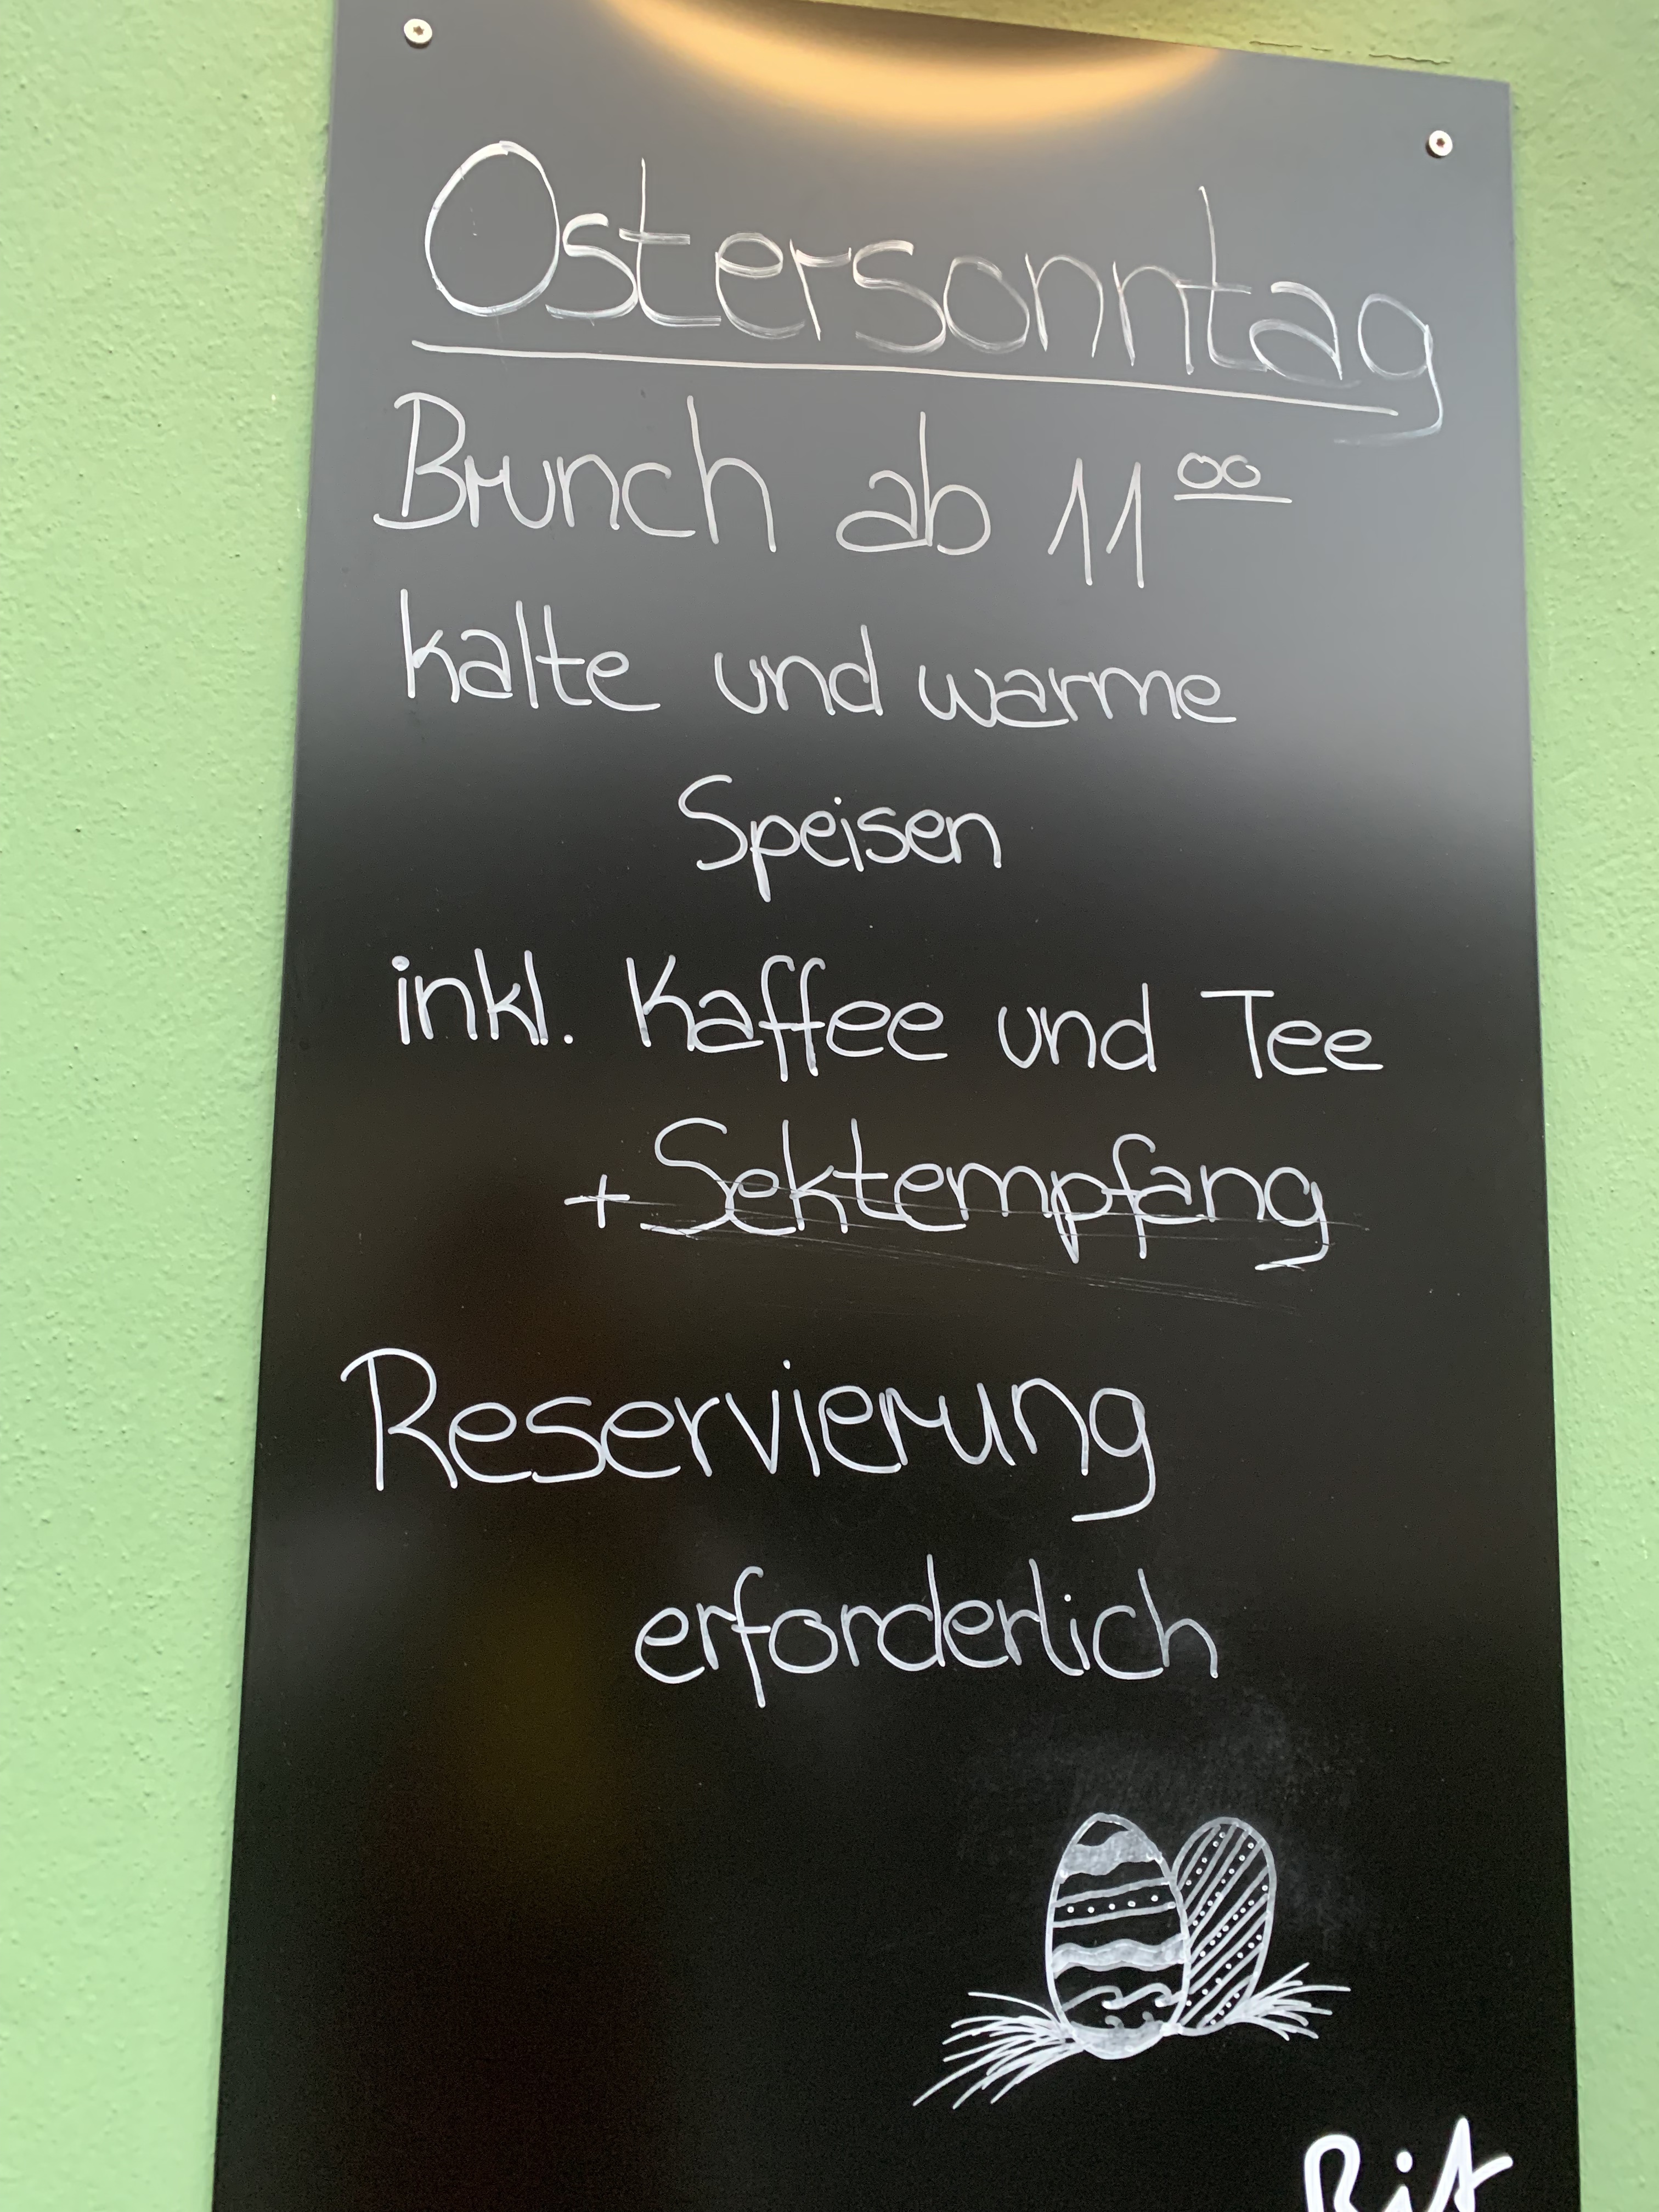 Ostersonntag
Brunch ab 11⁰⁰
kalte und warme
Speisen
inkl. Kaffee und Tee
+ Sektempfang
Reservierung
erforderlich
Bit